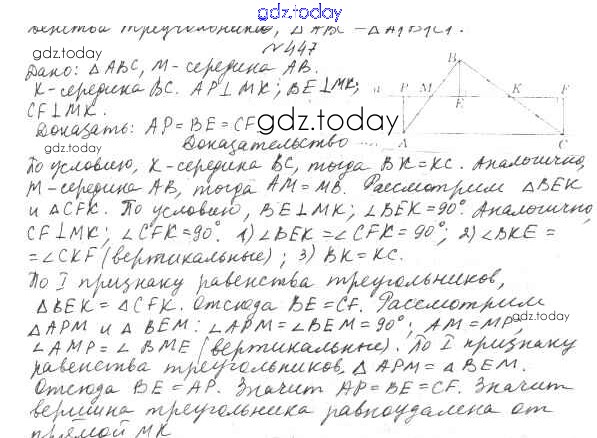 gdz.today
венства треугольников, △ABC = △A1B1C1.
gdz.today
№447
Дано: △ABC, M - середина AB.
K - середина BC. AP⊥MK; BE⊥MK;
CF⊥MK.
Доказать: AP = BE = CF
gdz.today
B
a P M E K F
A C
Доказательство
По условию, K - середина BC, тогда BK = KC. Аналогично,
M - середина AB, тогда AM = MB. Рассмотрим △BEK
и △CFK. По условию, BE⊥MK; ∠BEK = 90°. Аналогично,
CF⊥MK; ∠CFK = 90°. 1) ∠BEK = ∠CFK = 90°; 2) ∠BKE =
= ∠CKF (вертикальные); 3) BK = KC.
По I признаку равенства треугольников,
△BEK = △CFK. Отсюда BE = CF. Рассмотрим
gdz.today
△APM и △BEM: ∠APM = ∠BEM = 90°; AM = MP,
∠AMP = ∠BME (вертикальные). По I признаку
равенства треугольников △APM = △BEM.
gdz.today
Отсюда BE = AP. Значит AP = BE = CF. Значит
вершина треугольника равноудалена от
прямой MK